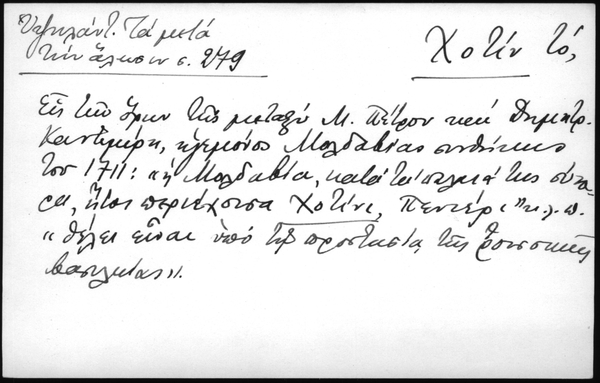 Ὑψηλάντ. Τὰ μετὰ
τὴν ἅλωσιν σ. 279
Χοτίν τό,
Εἰς τὸν ὅρον τῆς μεταξὺ Μ. Πέτρου καὶ Δημητρ.
Καντιμίρη, ἡγεμόνος Μολδαβίας συνθήκης
τοῦ 1711: "ἡ Μολδαβία, κατὰ τὰ παλαιά της σύνο-
ρα, ἤτοι περιέχουσα Χοτίνι, Πεντέρι" κ.λ.π.
"θέλει εἶναι ὑπὸ τὴν προστασία τῆς ῥωσσικῆς
βασιλείας".